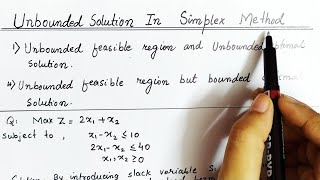 Unbounded Solution In Simplex Method
i) Unbounded feasible region and Unbounded optimal
solution.
ii) Unbounded feasible region but bounded
solution.
Q: Max Z = 2x₁ + x₂
subject to, x₁ - x₂ ≤ 10
2x₁ - x₂ ≤ 40
x₁, x₂ ≥ 0
By introducing slack variable